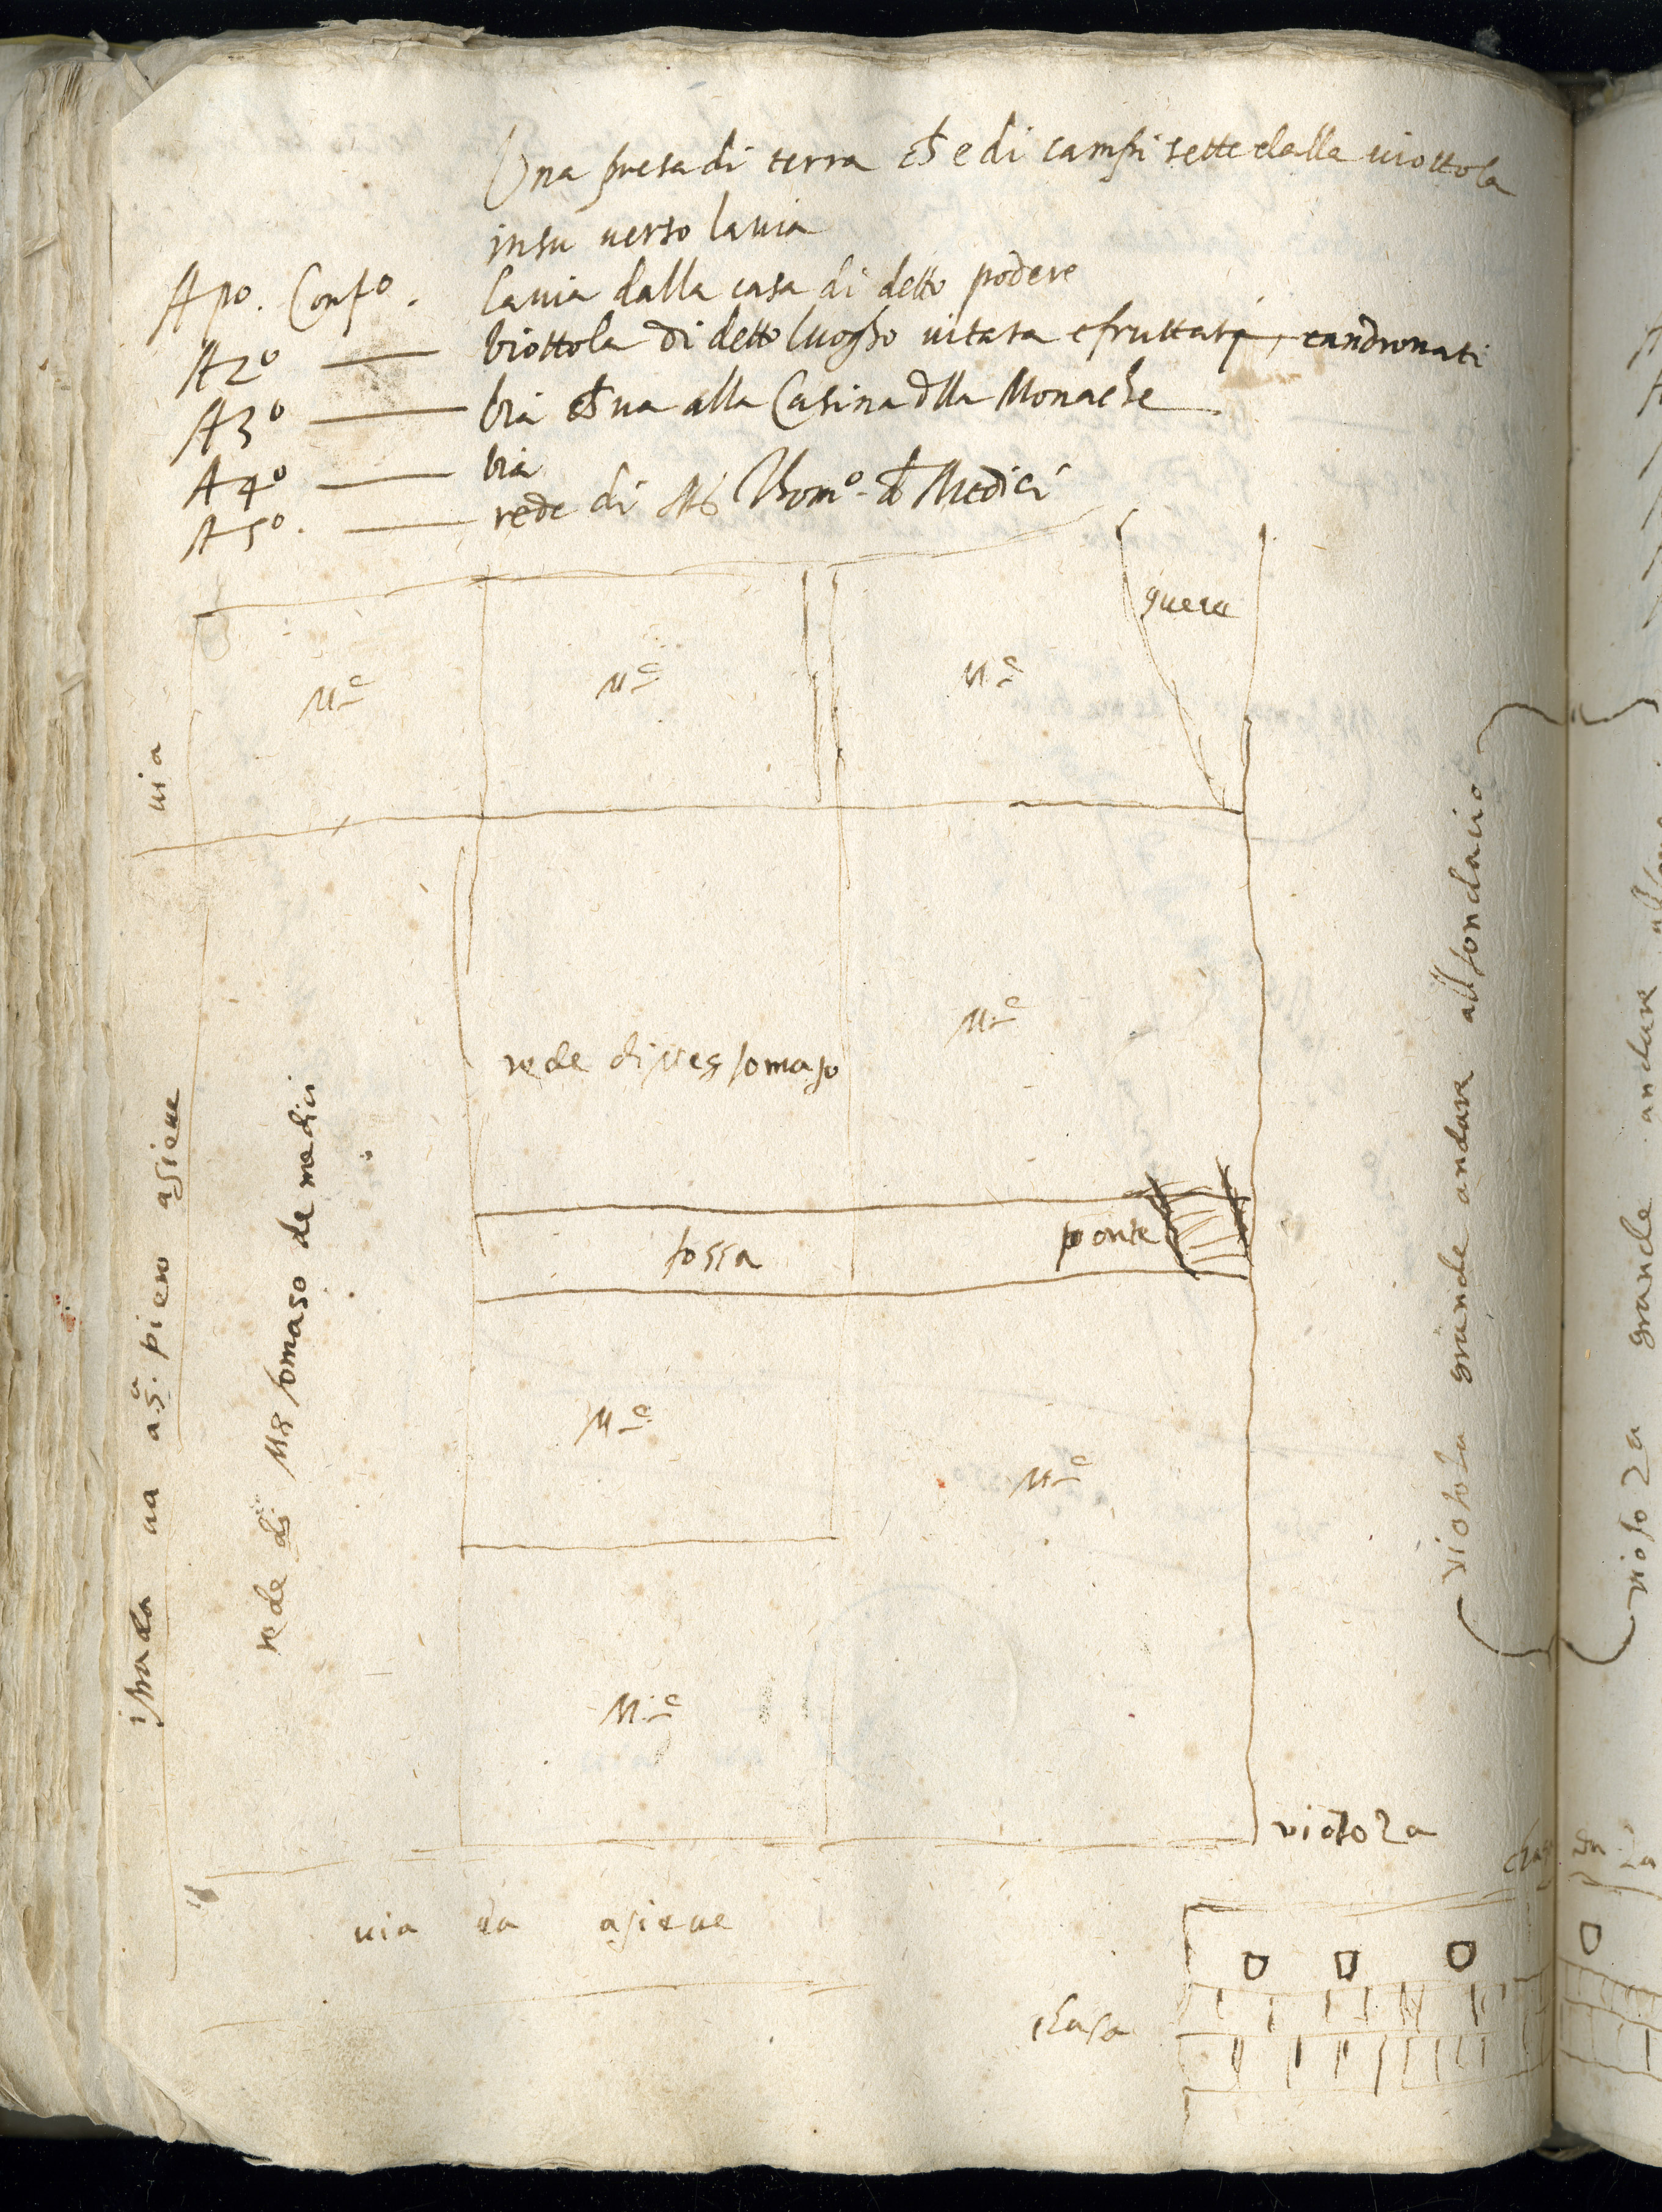 Una presa di terra ch e di campi sette dalla viottola
insu verso lavia
A po. Confo. lavia dalla casa di detto podere
A 2o — Viottola di detto luogho vitata e fruttata, eandronati
A 3o — Via ch va alla Casina dlla Monache
A 4o — Via
A 5o. — rede di Mß Thomo. d Medici
quera
Mc
Mc
Mc
via
Mc
rede di Mess tomaso
fossa
ponte
istrada va a S. piero asieve
rede di Mß tomaso de medici
viotola grande andare all fondacio
Mc
Mc
Mc
viotola
via va asieve
chasa
viotola grande andare